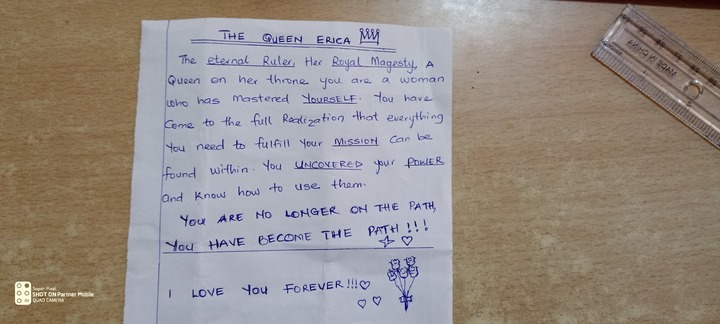 THE QUEEN ERICA
The eternal Ruler, Her Royal Magesty, A
Queen on her throne you are a woman
who has mastered YOURSELF. You have
Come to the full Realization that everything
You need to fulfill Your MISSION can be
found within. You UNCOVERED your POWER
and know how to use them.
You ARE NO LONGER ON THE PATH,
You HAVE BECOME THE PATH !!!
I LOVE YOU FOREVER!!!
Super Pixel
SHOT ON Partner Mobile
QUAD CAMERA